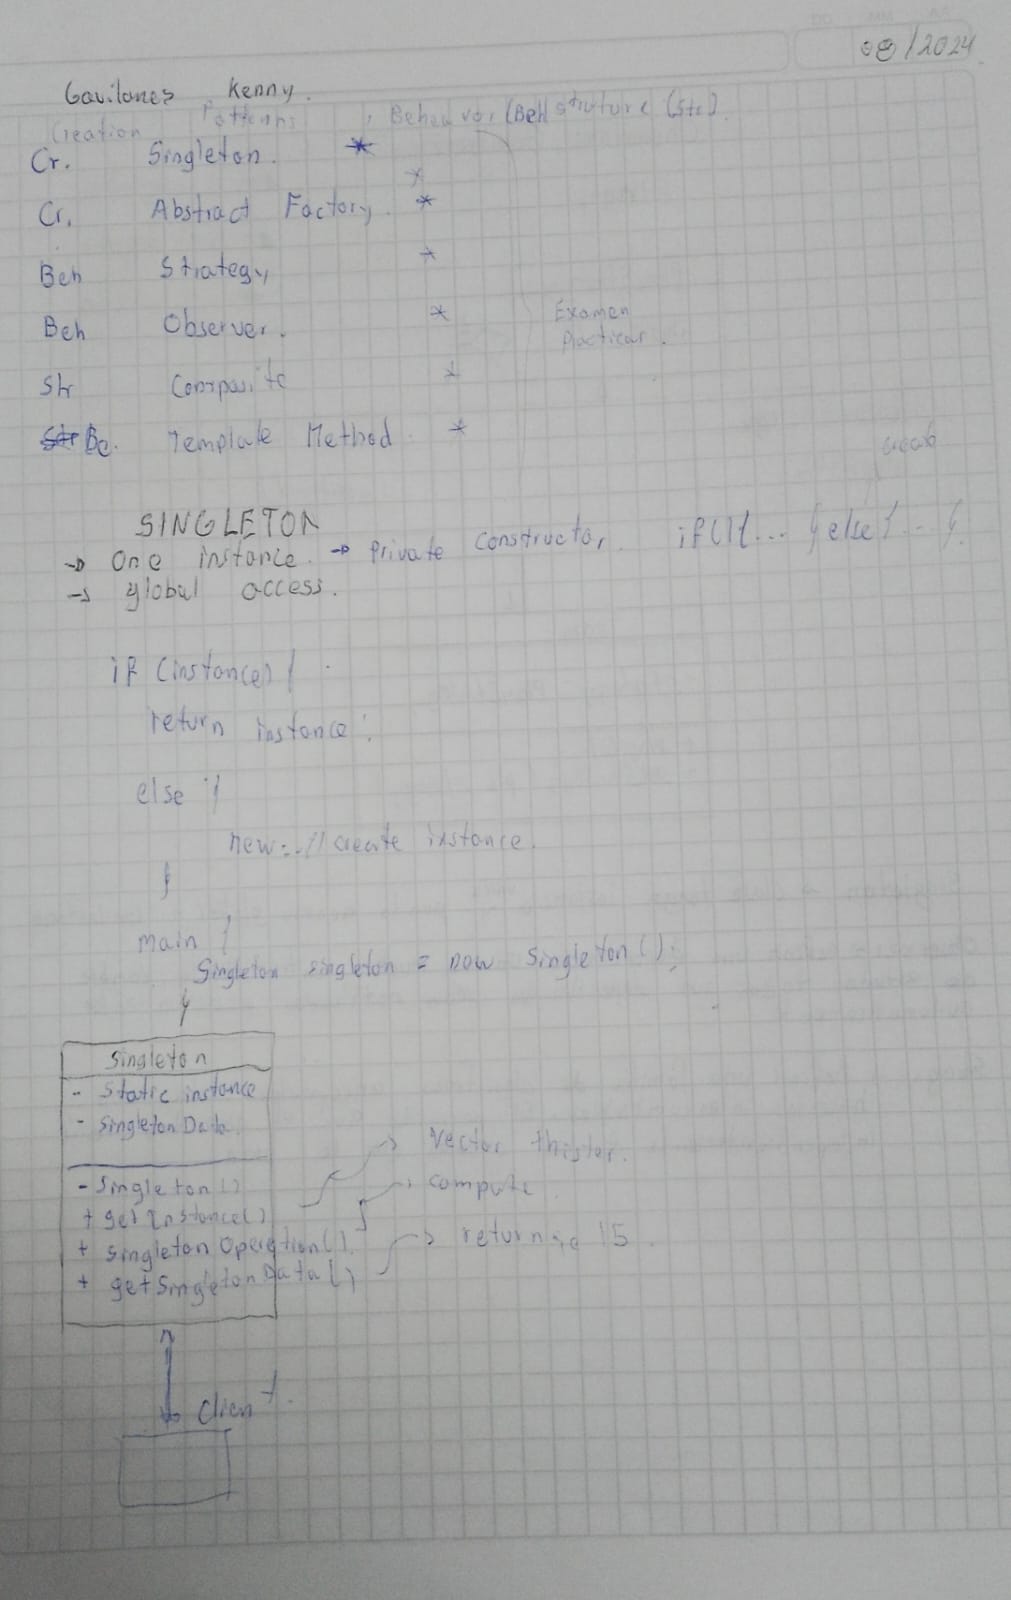 08/2024
Gavilanes Kenny.
Creation Patterns, Behavor (Beh) struture (Str).
Cr. Singleton. *
*
Cr. Abstract Factory. *
Beh Strategy *
Beh Observer. *
Examen
Practicar.
Str Composite *
Be. Template Method. *
SINGLETON
→ One instance. → Private Constructor. if(){... }else{...}
→ global access.
if (instance) {
return instance;
else {
new... // create instance.
}
main {
Singleton singleton = new Singleton();
}
Singleton
- Static instance
- Singleton Data.
- Singleton()
+ getInstance()
+ Singleton Operation()
+ getSingletonData()
Vector
compute
15
Client.